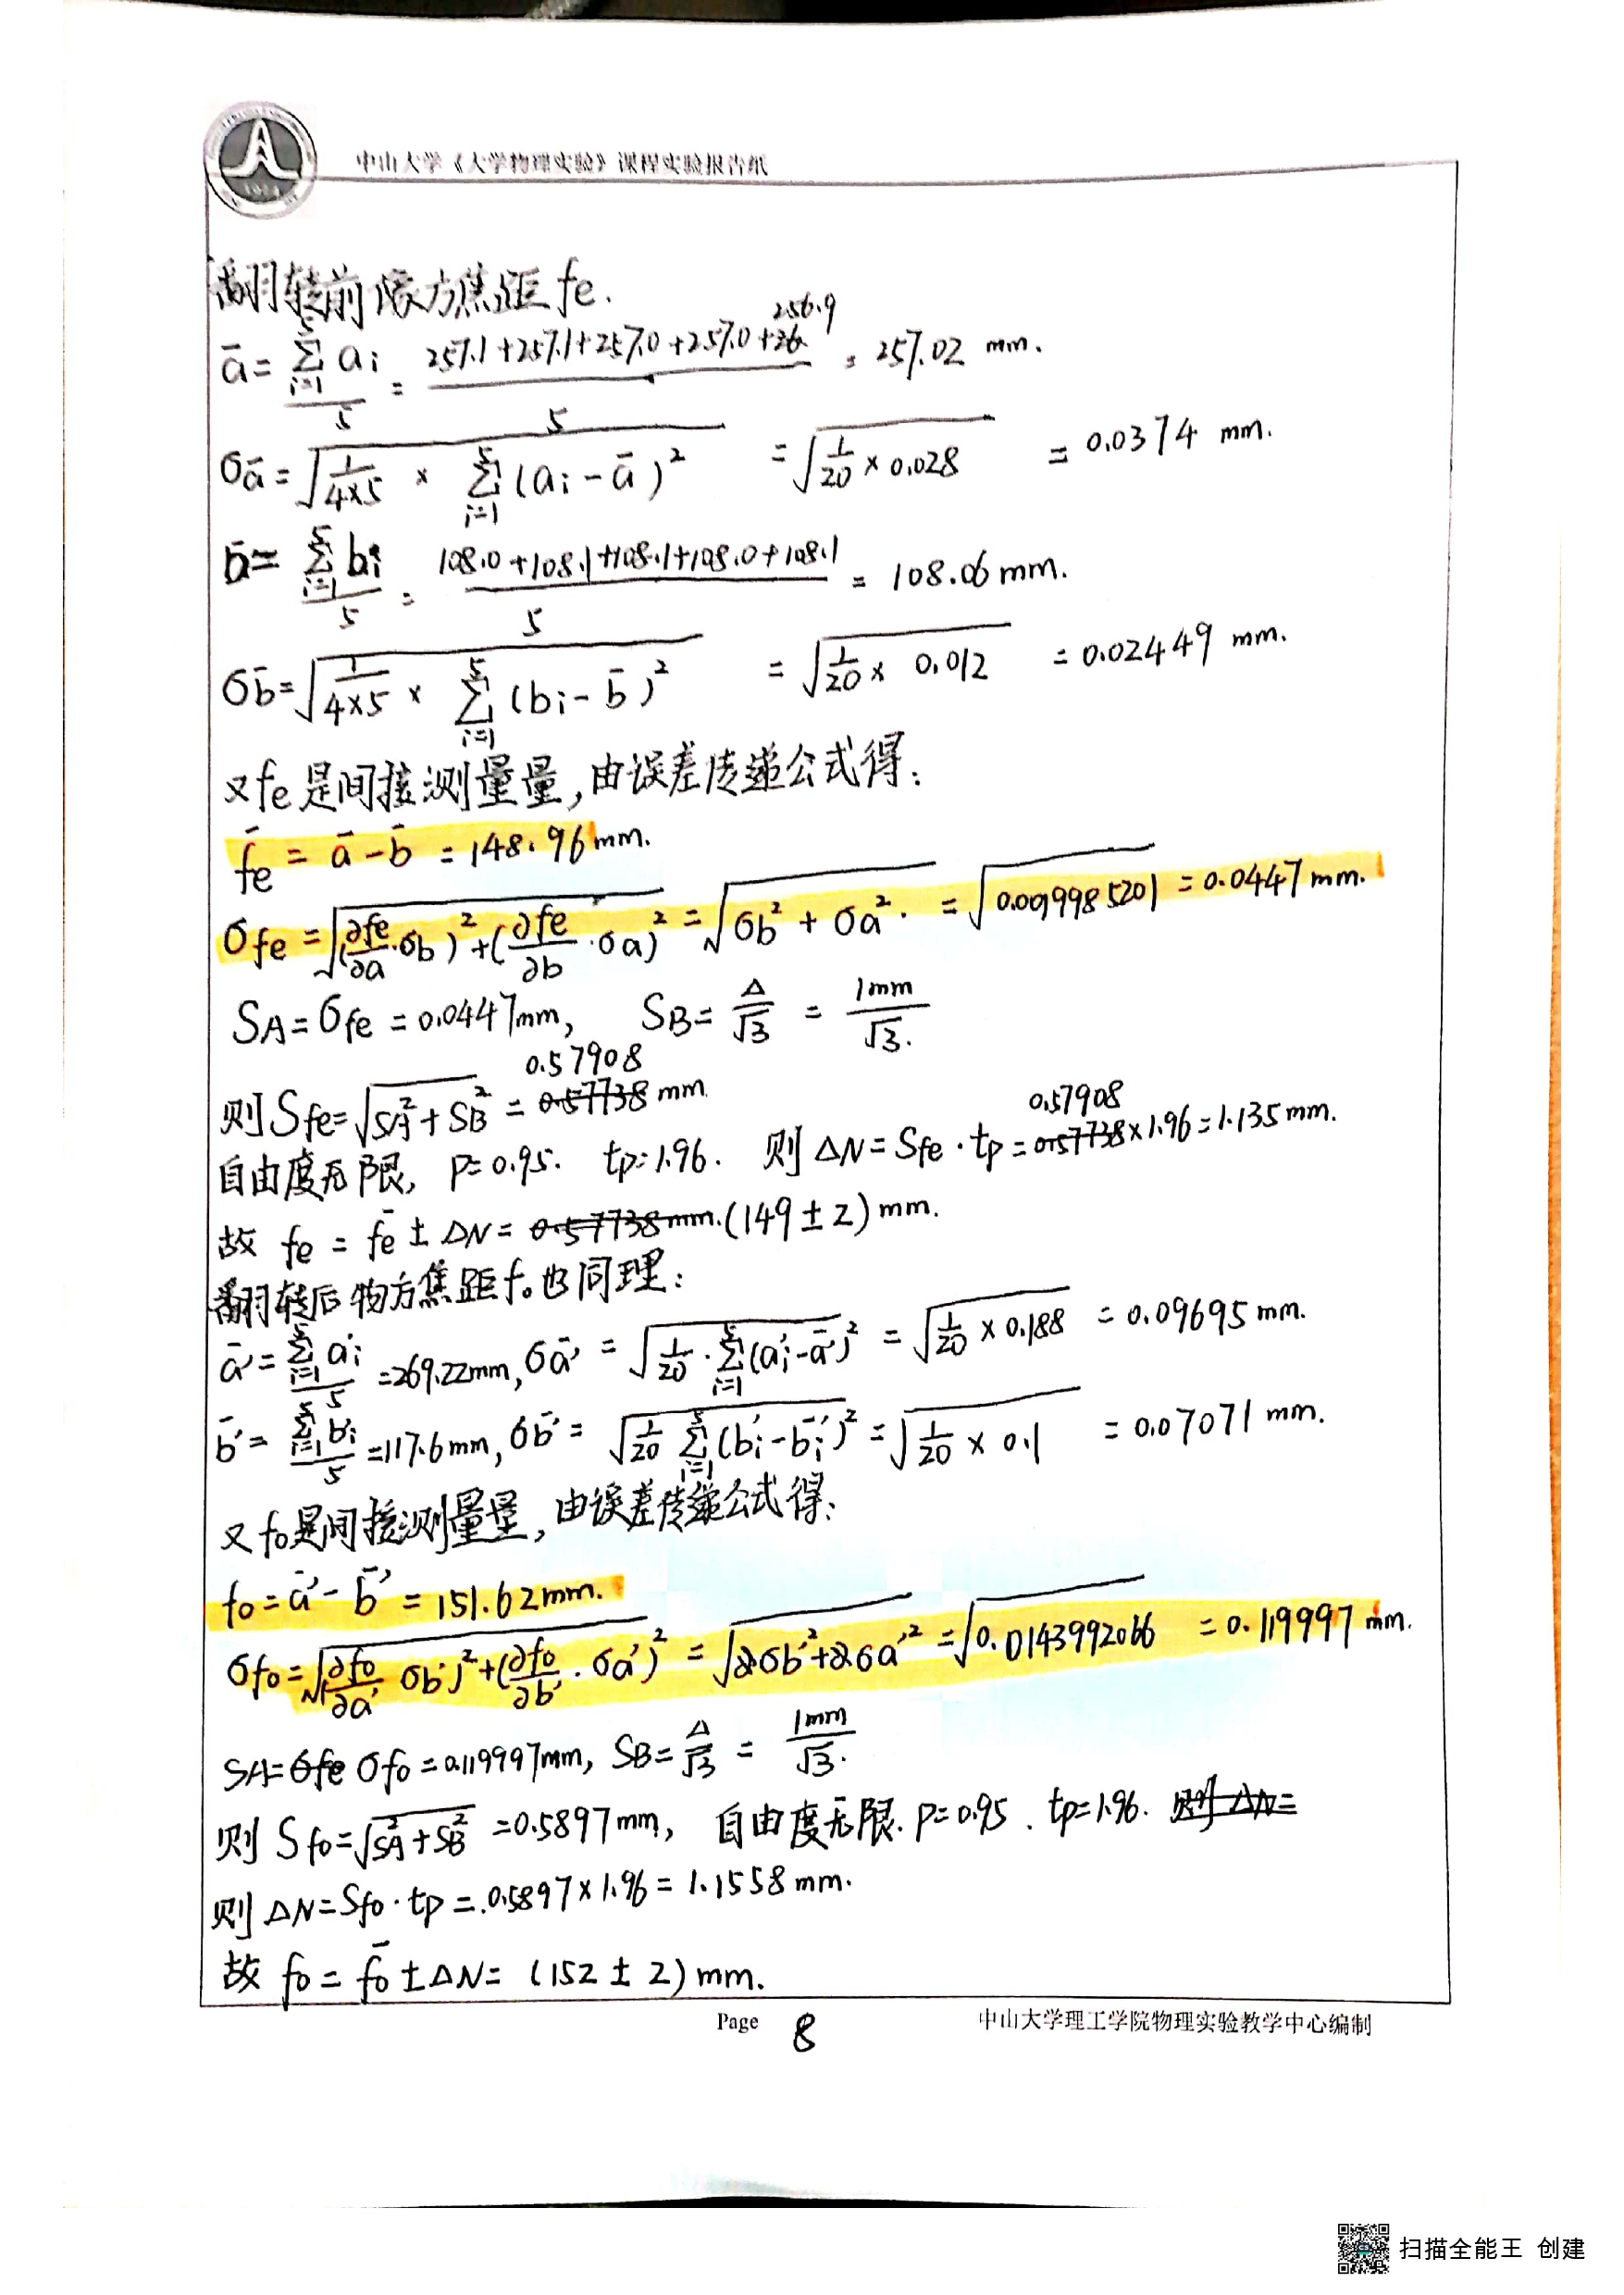 中山大学《大学物理实验》课程实验报告纸
翻转前像方焦距fe.
ā = Σ(i=1→5) ai / 5 = (257.1+257.1+257.0+257.0+256.9) / 5 = 257.02 mm.
σā = √(1/(4×5) × Σ(i=1→5) (ai - ā)²) = √(1/20 × 0.028) = 0.0374 mm.
b̄ = Σ(i=1→5) bi / 5 = (108.0+108.1+108.1+108.0+108.1) / 5 = 108.06 mm.
σb̄ = √(1/(4×5) × Σ(i=1→5) (bi - b̄)²) = √(1/20 × 0.012) = 0.02449 mm.
又fe是间接测量量,由误差传递公式得:
f̄e = ā - b̄ = 148.96 mm.
σfe = √((∂fe/∂a · σb)² + (∂fe/∂b · σa)²) = √(σb² + σa²) = √0.0019985201 = 0.0447 mm.
SA = σfe = 0.0447 mm, SB = Δ/√3 = 1mm/√3.
则 Sfe = √(SA² + SB²) = 0.57908 mm
自由度无限, P=0.95. tp=1.96. 则 ΔN = Sfe · tp = 0.57908 × 1.96 = 1.135 mm.
故 fe = f̄e ± ΔN = (149 ± 2) mm.
翻转后物方焦距f₀也同理:
ā' = Σ(i=1→5) ai' / 5 = 269.22 mm, σā' = √(1/20 · Σ(i=1→5) (ai' - ā')²) = √(1/20 × 0.188) = 0.09695 mm.
b̄' = Σ(i=1→5) bi' / 5 = 117.6 mm, σb̄' = √(1/20 Σ(i=1→5) (bi' - b̄i')²) = √(1/20 × 0.1) = 0.07071 mm.
又f₀是间接测量量,由误差传递公式得:
f₀ = ā' - b̄' = 151.62 mm.
σf₀ = √((∂f₀/∂a' σb')² + (∂f₀/∂b' · σa')²) = √(σb'² + σa'²) = √0.0143992066 = 0.119997 mm.
SA = σf₀ = 0.119997 mm, SB = Δ/√3 = 1mm/√3.
则 Sf₀ = √(SA² + SB²) = 0.5897 mm, 自由度无限. P=0.95. tp=1.96.
则 ΔN = Sf₀ · tp = 0.5897 × 1.96 = 1.1558 mm.
故 f₀ = f̄₀ ± ΔN = (152 ± 2) mm.
Page 8 中山大学理工学院物理实验教学中心编制
扫描全能王 创建